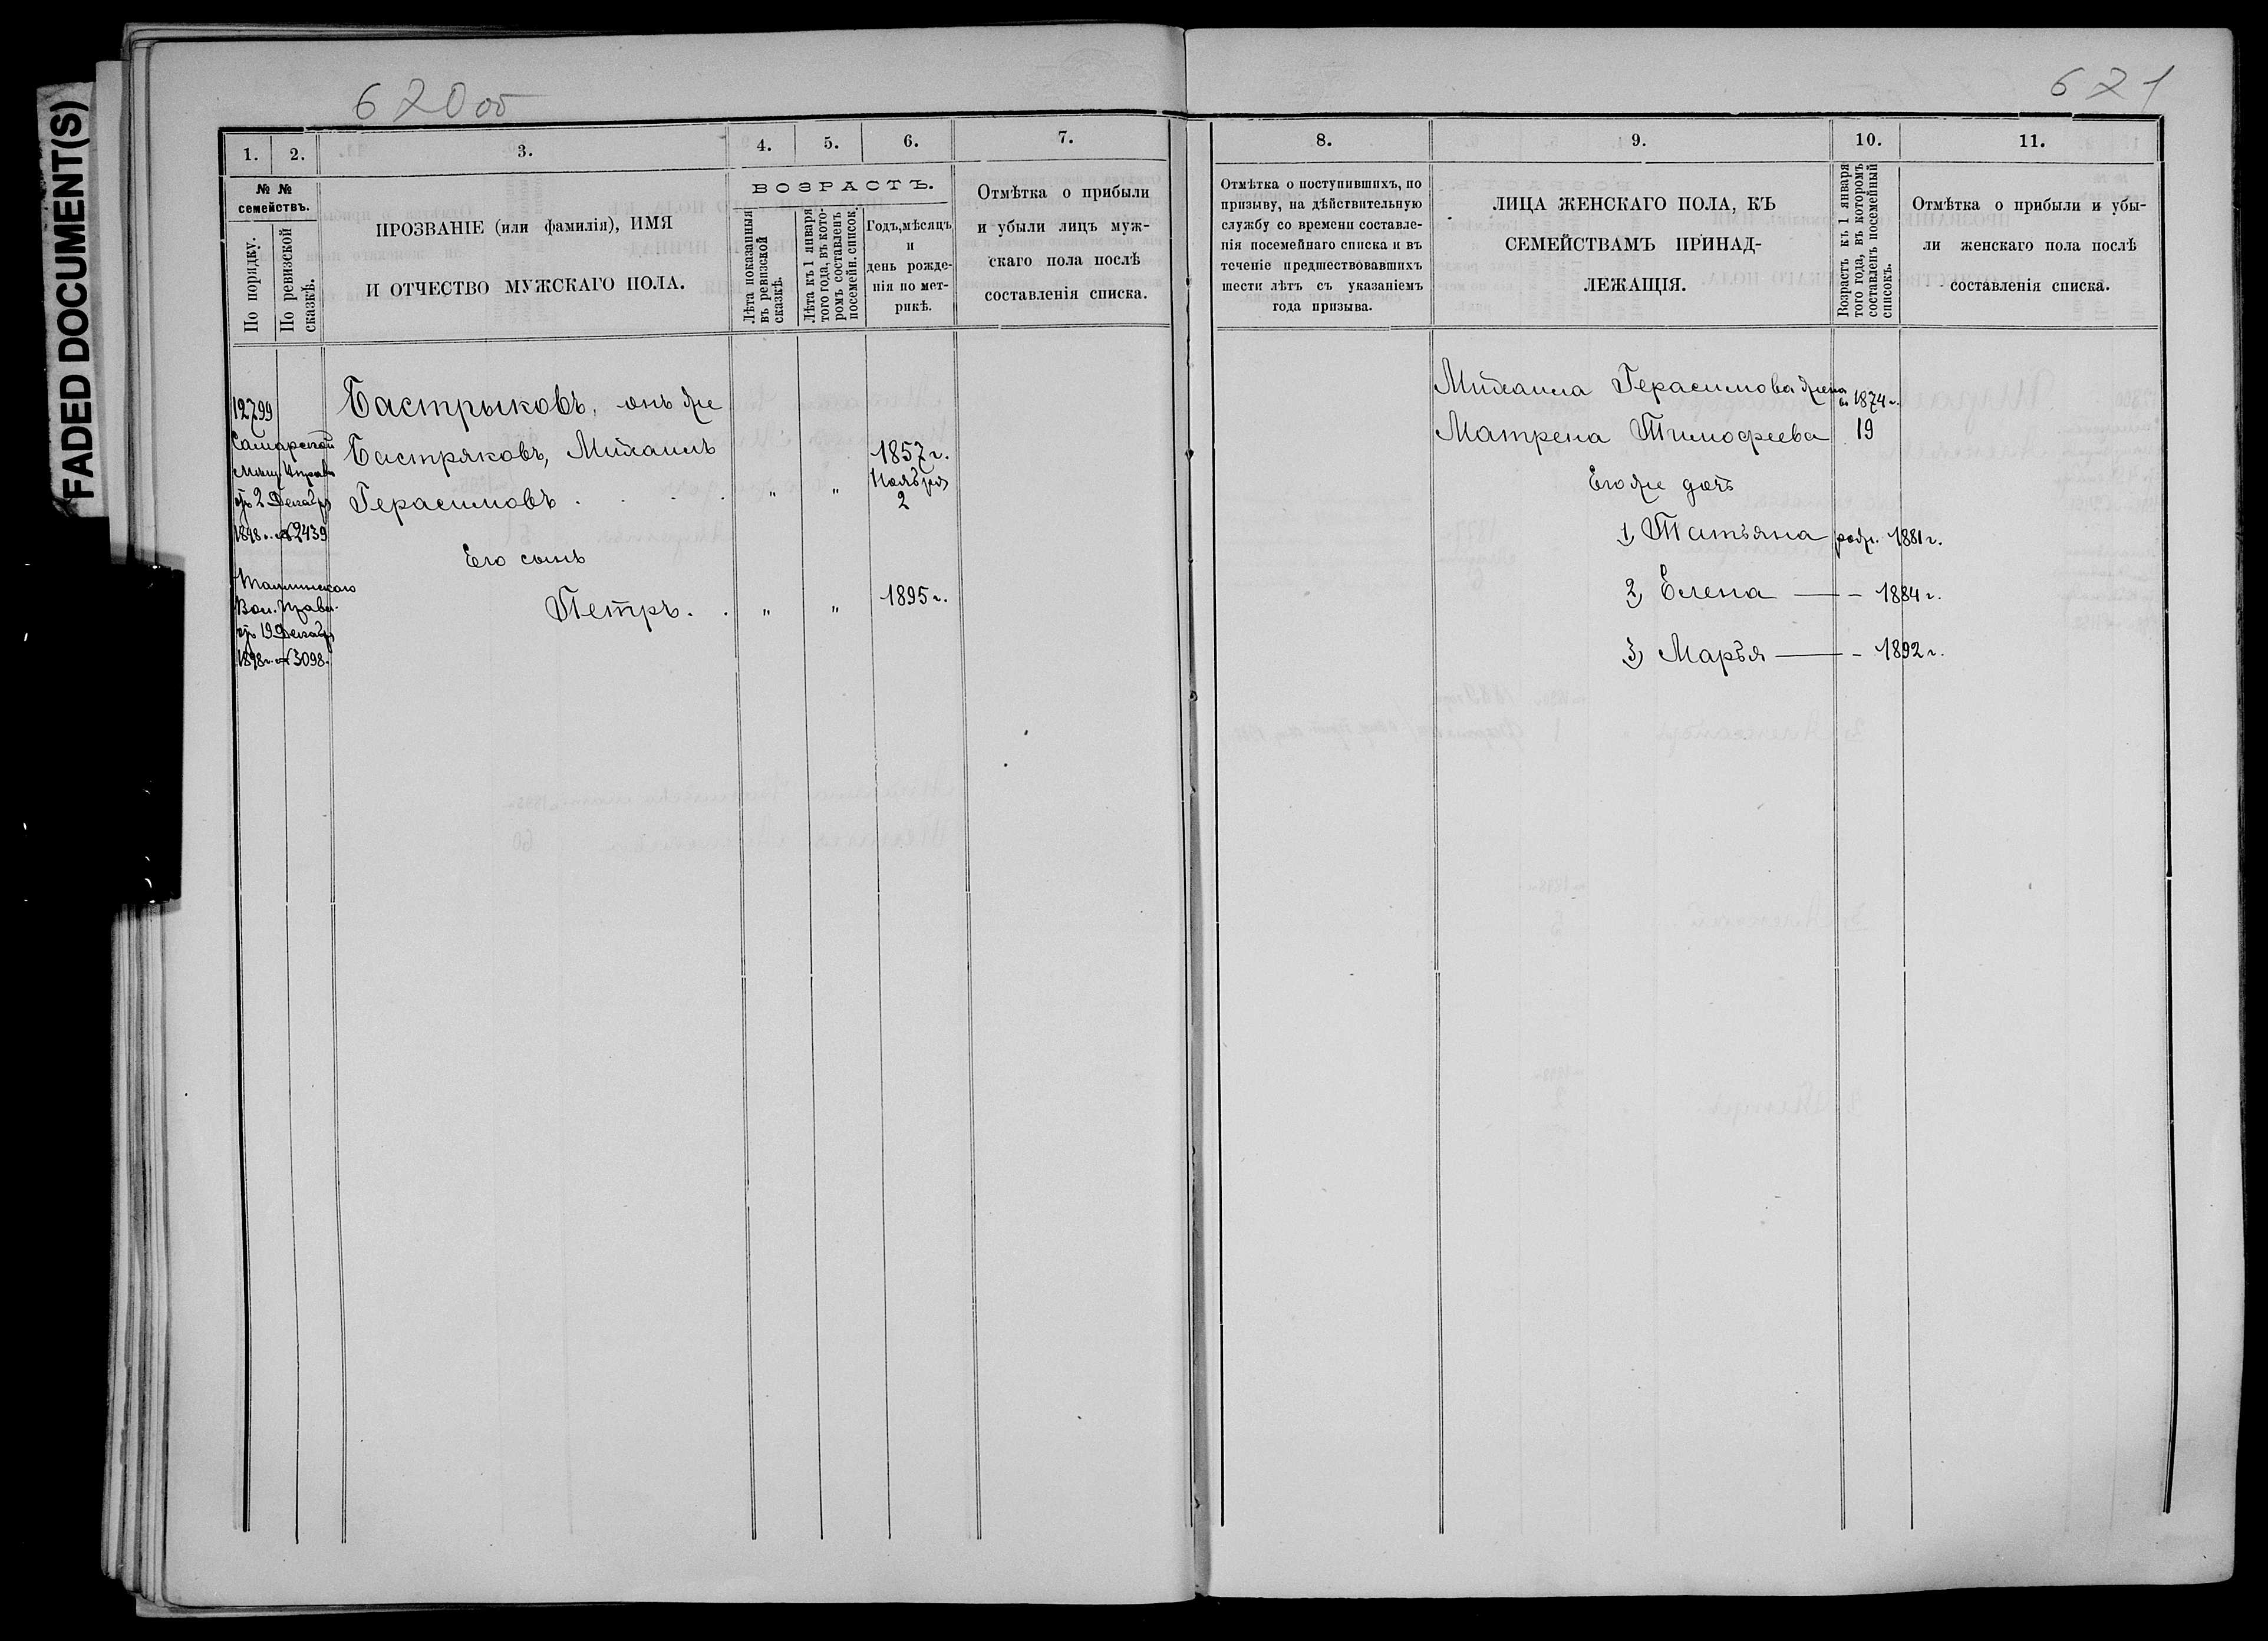 FADED DOCUMENT(S)
620об
621
1. 2. 3. 4. 5. 6. 7.
№ №
семействъ.
По порядку.
По ревизской
сказкѣ.
ПРОЗВАНІЕ (или фамилія), ИМЯ
И ОТЧЕСТВО МУЖСКАГО ПОЛА.
ВОЗРАСТЪ.
Лѣта показанныя
въ ревизской
сказкѣ.
Лѣта къ 1 января
того года, въ кото-
ромъ составленъ
посемейн. список.
Годъ, мѣсяцъ
и
день рожде-
нія по мет-
рикѣ.
Отмѣтка о прибыли
и убыли лицъ муж-
скаго пола послѣ
составленія списка.
12799
Самарской
Мѣщ. Управы
отъ 2 Декабря
1898 г. № 2439
Вол. Правл.
отъ 19 Декабря
1898 г. № 3098.
Бастрыковъ, онъ же
Бастряковъ, Михаилъ
Герасимовъ . . . . " " 1857 г.
Ноября
2
Его сынъ
Петръ. . " " 1895 г.
8. 9. 10. 11.
Отмѣтка о поступившихъ, по
призыву, на дѣйствительную
службу со времени составле-
нія посемейнаго списка и въ
теченіе предшествовавшихъ
шести лѣтъ съ указаніемъ
года призыва.
ЛИЦА ЖЕНСКАГО ПОЛА, КЪ
СЕМЕЙСТВАМЪ ПРИНАД-
ЛЕЖАЩІЯ.
Возрастъ къ 1 января
того года, въ которомъ
составленъ посемейный
списокъ.
Отмѣтка о прибыли и убы-
ли женскаго пола послѣ
составленія списка.
Михаила Герасимова жена въ 1874 г.
Матрена Тимофеева 19
Его же дочь
1) Татьяна родж. 1881 г.
2) Елена — - 1884 г.
3) Марья — - 1892 г.